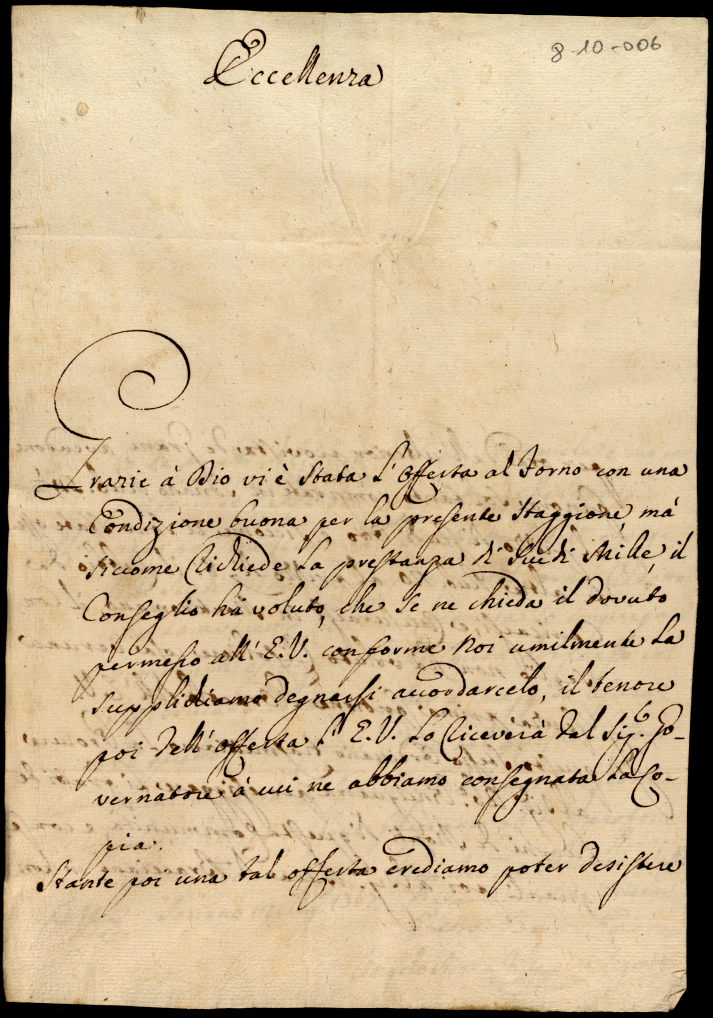 8-10-006
Eccellenza
Grazie à Dio vi è stata l'offerta al Forno con una
Condizione buona per la presente Staggione, mà
siccome Richiede la prestanza di Scudi Mille, il
Conseglio hà voluto, che se ne chieda il dovuto
permesso all' E.V. conforme Noi umilmente la
supplichiamo degnarsi accordarcelo, il tenore
poi dell' offerta l' E.V. lo Riceverà dal Sig.r Go-
vernatore à cui ne abbiamo consegnata la Co-
pia.
Stante poi una tal offerta crediamo poter desistere